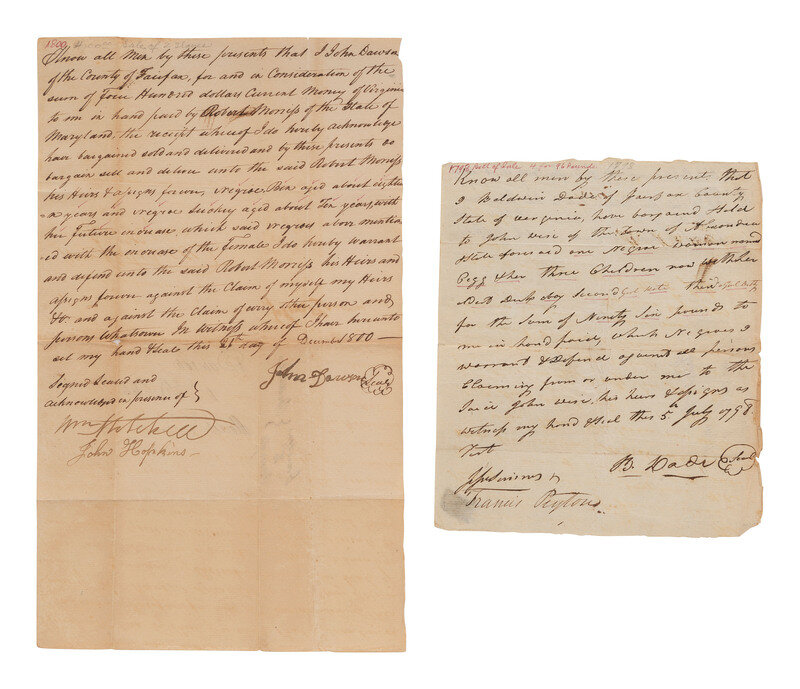 1800 Sale of 2 slaves
Know all Men by these presents that I John Dawson
of the County of Fairfax, for and in Consideration of the
sum of Four Hundred dollars Current Money of Virginia
to me in hand paid by Robert Morriss of the State of
Maryland, the receipt whereof I do hereby acknowledge
have bargained sold and delivered and by these presents do
bargain sell and deliver unto the said Robert Morriss
his Heirs & assigns forever, Negroe Ben aged about eighte
en years and Negroe Suckey aged about Ten years, with
her Future encrease, which said negroes above mention
ed with the encrease of the Female I do hereby warrant
and defend unto the said Robert Morriss his Heirs and
assigns forever against the Claim of myself my Heirs
&c. and against the Claim of every other person and
persons whatsoever In witness whereof I have hereunto
set my hand & seal this day of December 1800
John Dawson Seal
Signed Sealed and
acknowledged in presence of
Wm Mitchell
John Hopkins
Bill of Sale 4 for 96 Pounds 1798
Know all men by these present, that
I Baldwin Dade of fairfax County
State of vergenia, have boy and Held
to John wise of the Town of
State foresaid one Negroe woman named
Pegg & her three Children now with her
oldest boy second
for the Sum of Ninety Six pounds to
me in hand paid, which Negroes I
warrant & defend against all persons
Claiming from or under me to the
Said John wise, his heirs & assigns as
witness my hand & seal this 5th July 1798
Test
B. Dade Seal
Francis Peyton